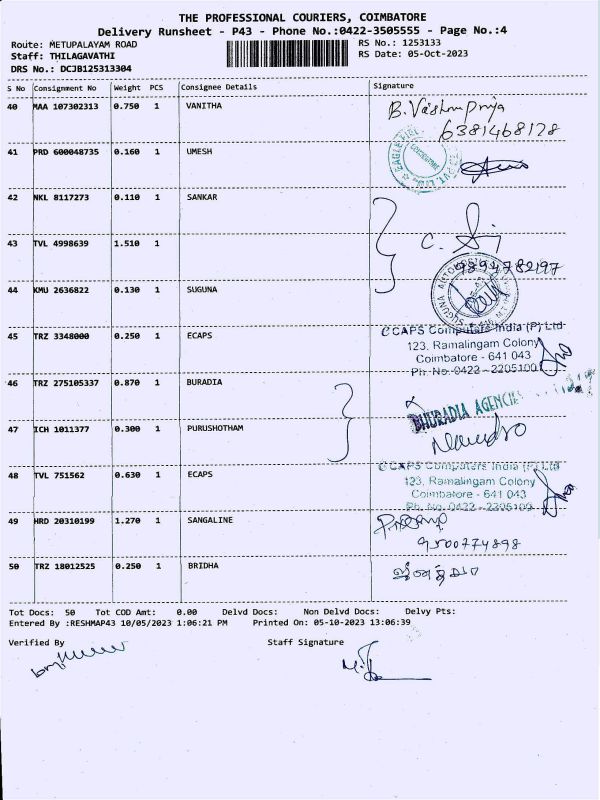 THE PROFESSIONAL COURIERS, COIMBATORE
Delivery Runsheet - P43 - Phone No.:0422-3505555 - Page No.:4
Route: METUPALAYAM ROAD RS No.: 1253133
Staff: THILAGAVATHI RS Date: 05-Oct-2023
DRS No.: DCJB125313304
S No Consignment No Weight PCS Consignee Details Signature
40 MAA 107302313 0.750 1 VANITHA B. Vaishnu Priya
6381468128
41 PRD 600048735 0.160 1 UMESH
42 NKL 8117273 0.110 1 SANKAR
43 TVL 4998639 1.510 1
9894782197
44 KMU 2636822 0.130 1 SUGUNA
45 TRZ 3348000 0.250 1 ECAPS eCAPS Computers India (P) Ltd
123, Ramalingam Colony
Coimbatore - 641 043
Ph. No.0422 - 2205100
46 TRZ 275105337 0.870 1 BURADIA BHURADIA AGENCIES
47 ICH 1011377 0.300 1 PURUSHOTHAM
48 TVL 751562 0.630 1 ECAPS eCAPS Computers India (P) Ltd
123, Ramalingam Colony
Coimbatore - 641 043
Ph. No. 0422 - 2205100
49 HRD 20310199 1.270 1 SANGALINE
9500774898
50 TRZ 18012525 0.250 1 BRIDHA
Tot Docs: 50 Tot COD Amt: 0.00 Delvd Docs: Non Delvd Docs: Delvy Pts:
Entered By :RESHMAP43 10/05/2023 1:06:21 PM Printed On: 05-10-2023 13:06:39
Verified By Staff Signature